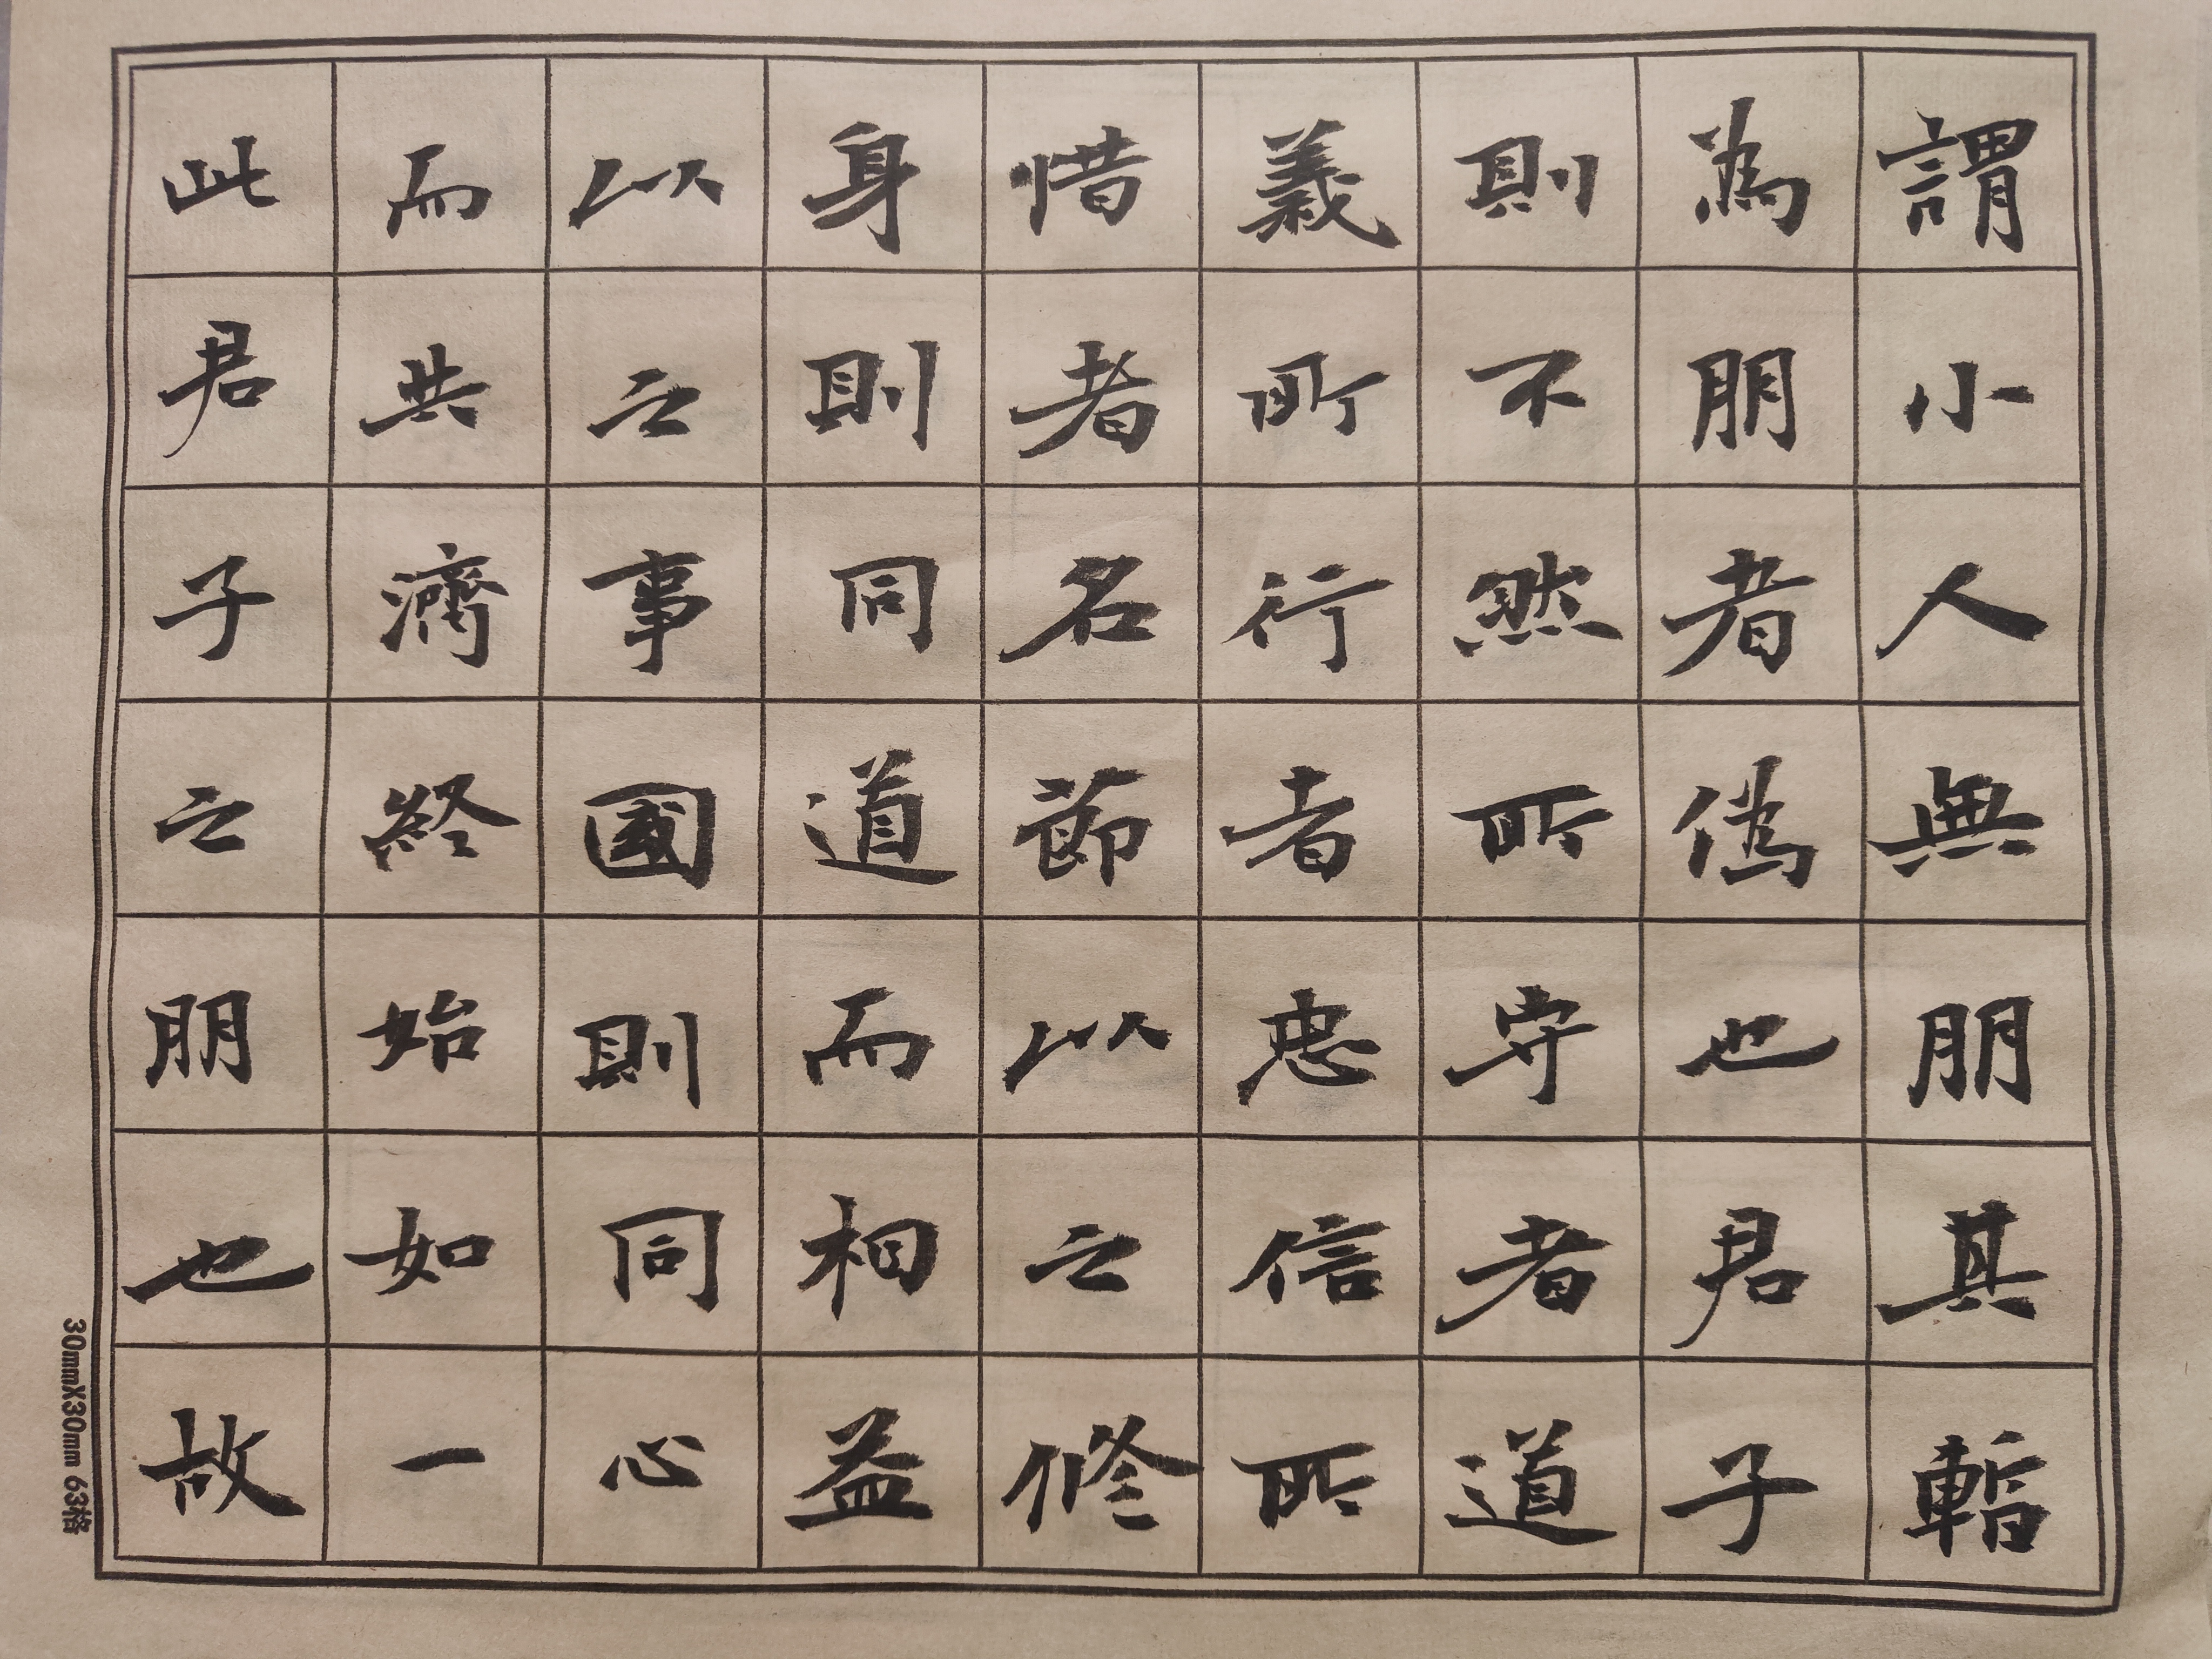 謂小人無朋其暫
為朋者偽也君子
則不然所守者道
義所行者忠信所
惜者名節以之修
身則同道而相益
以之事國則同心
而共濟終始如一
此君子之朋也故
30mmX30mm 63格